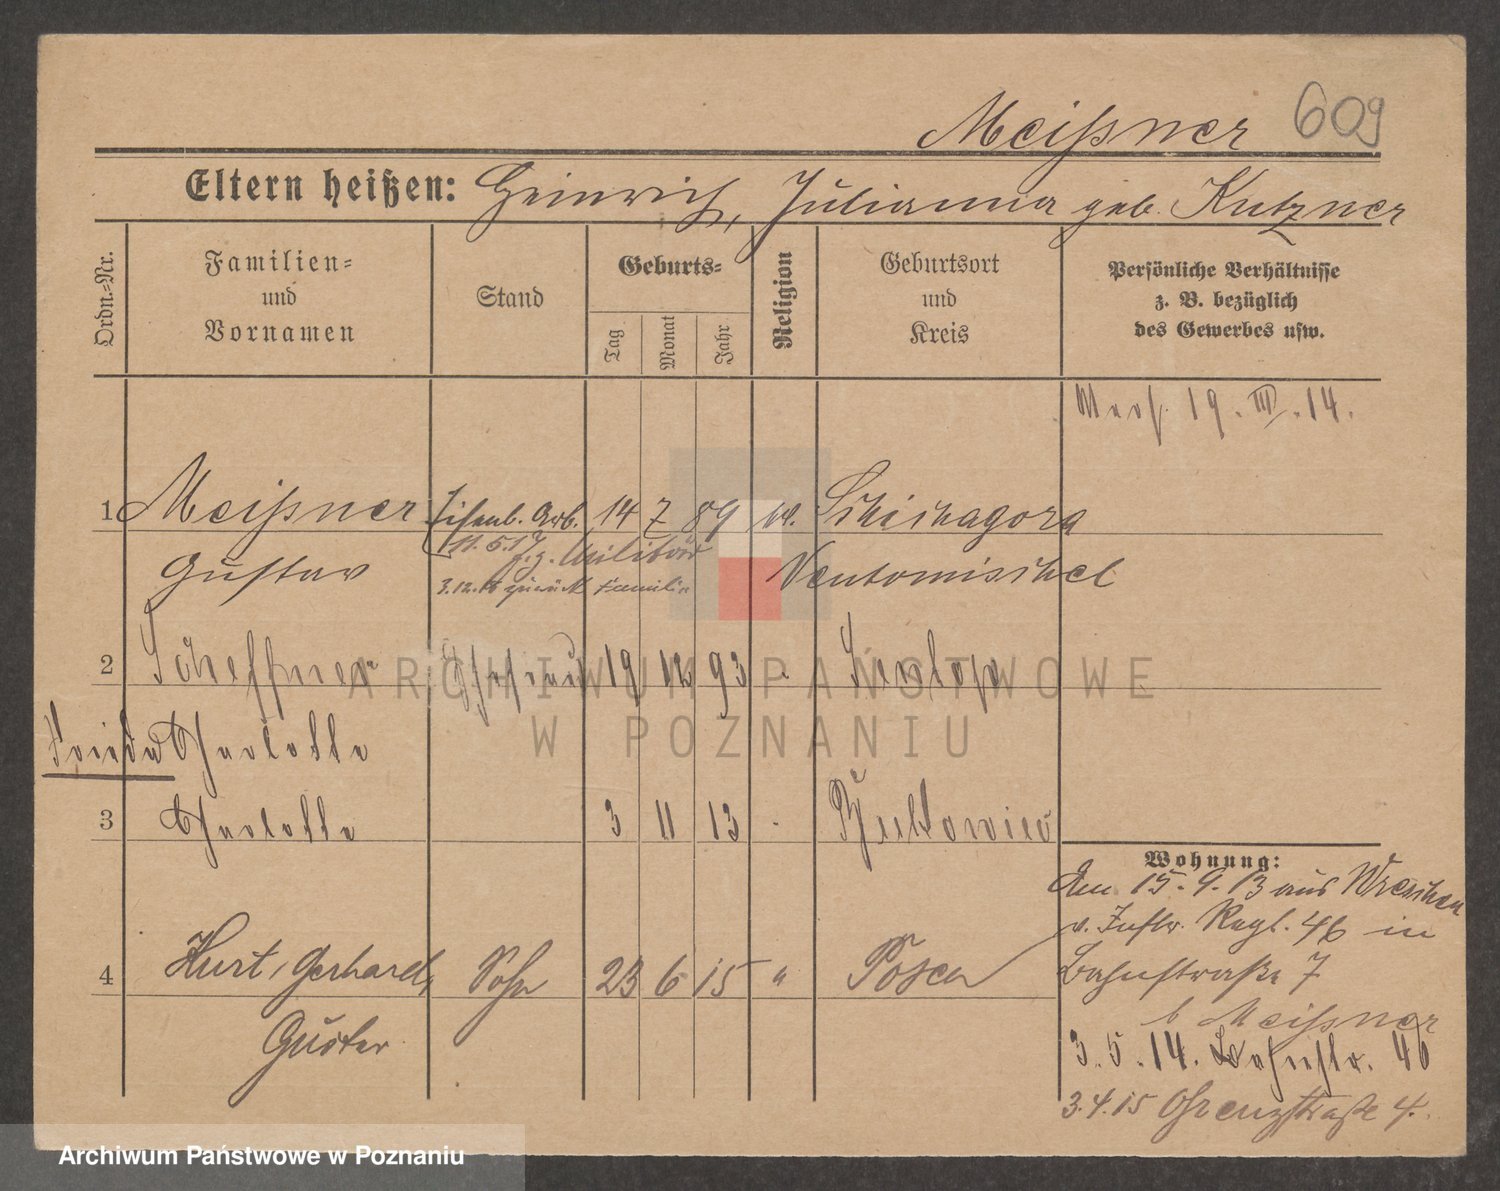 Meißner 609
Eltern heißen: Heinrich, Julianna geb. Kutzner
Ordn.-Nr.
Familien-
und
Vornamen
Stand
Geburts-
Tag
Monat
Jahr
Religion
Geburtsort
und
Kreis
Persönliche Verhältnisse
z. B. bezüglich
des Gewerbes usw.
19. III. 14.
1 Meißner Eisenb. Arb. 14 7 89 Schichagora
11.5.17 z. Militär
Gustav 3.12.18 zurück Familie Neutomischel
2 Scheffner Ehefrau 19 12 93
Frieda Charlotte
3 Charlotte 3 11 13
Wohnung:
Am 15.9.13 aus Wreschen
v. Inftr. Regt. 46 in
Bahnstraße 7
b Meißner
4 Kurt, Gerhard, Sohn 23 6 15 " Posen
Gustav
3.5.14. Bahnstr. 46
3.4.15 Grenzstraße 4.
ARCHIWUM PAŃSTWOWE
W POZNANIU
Archiwum Państwowe w Poznaniu